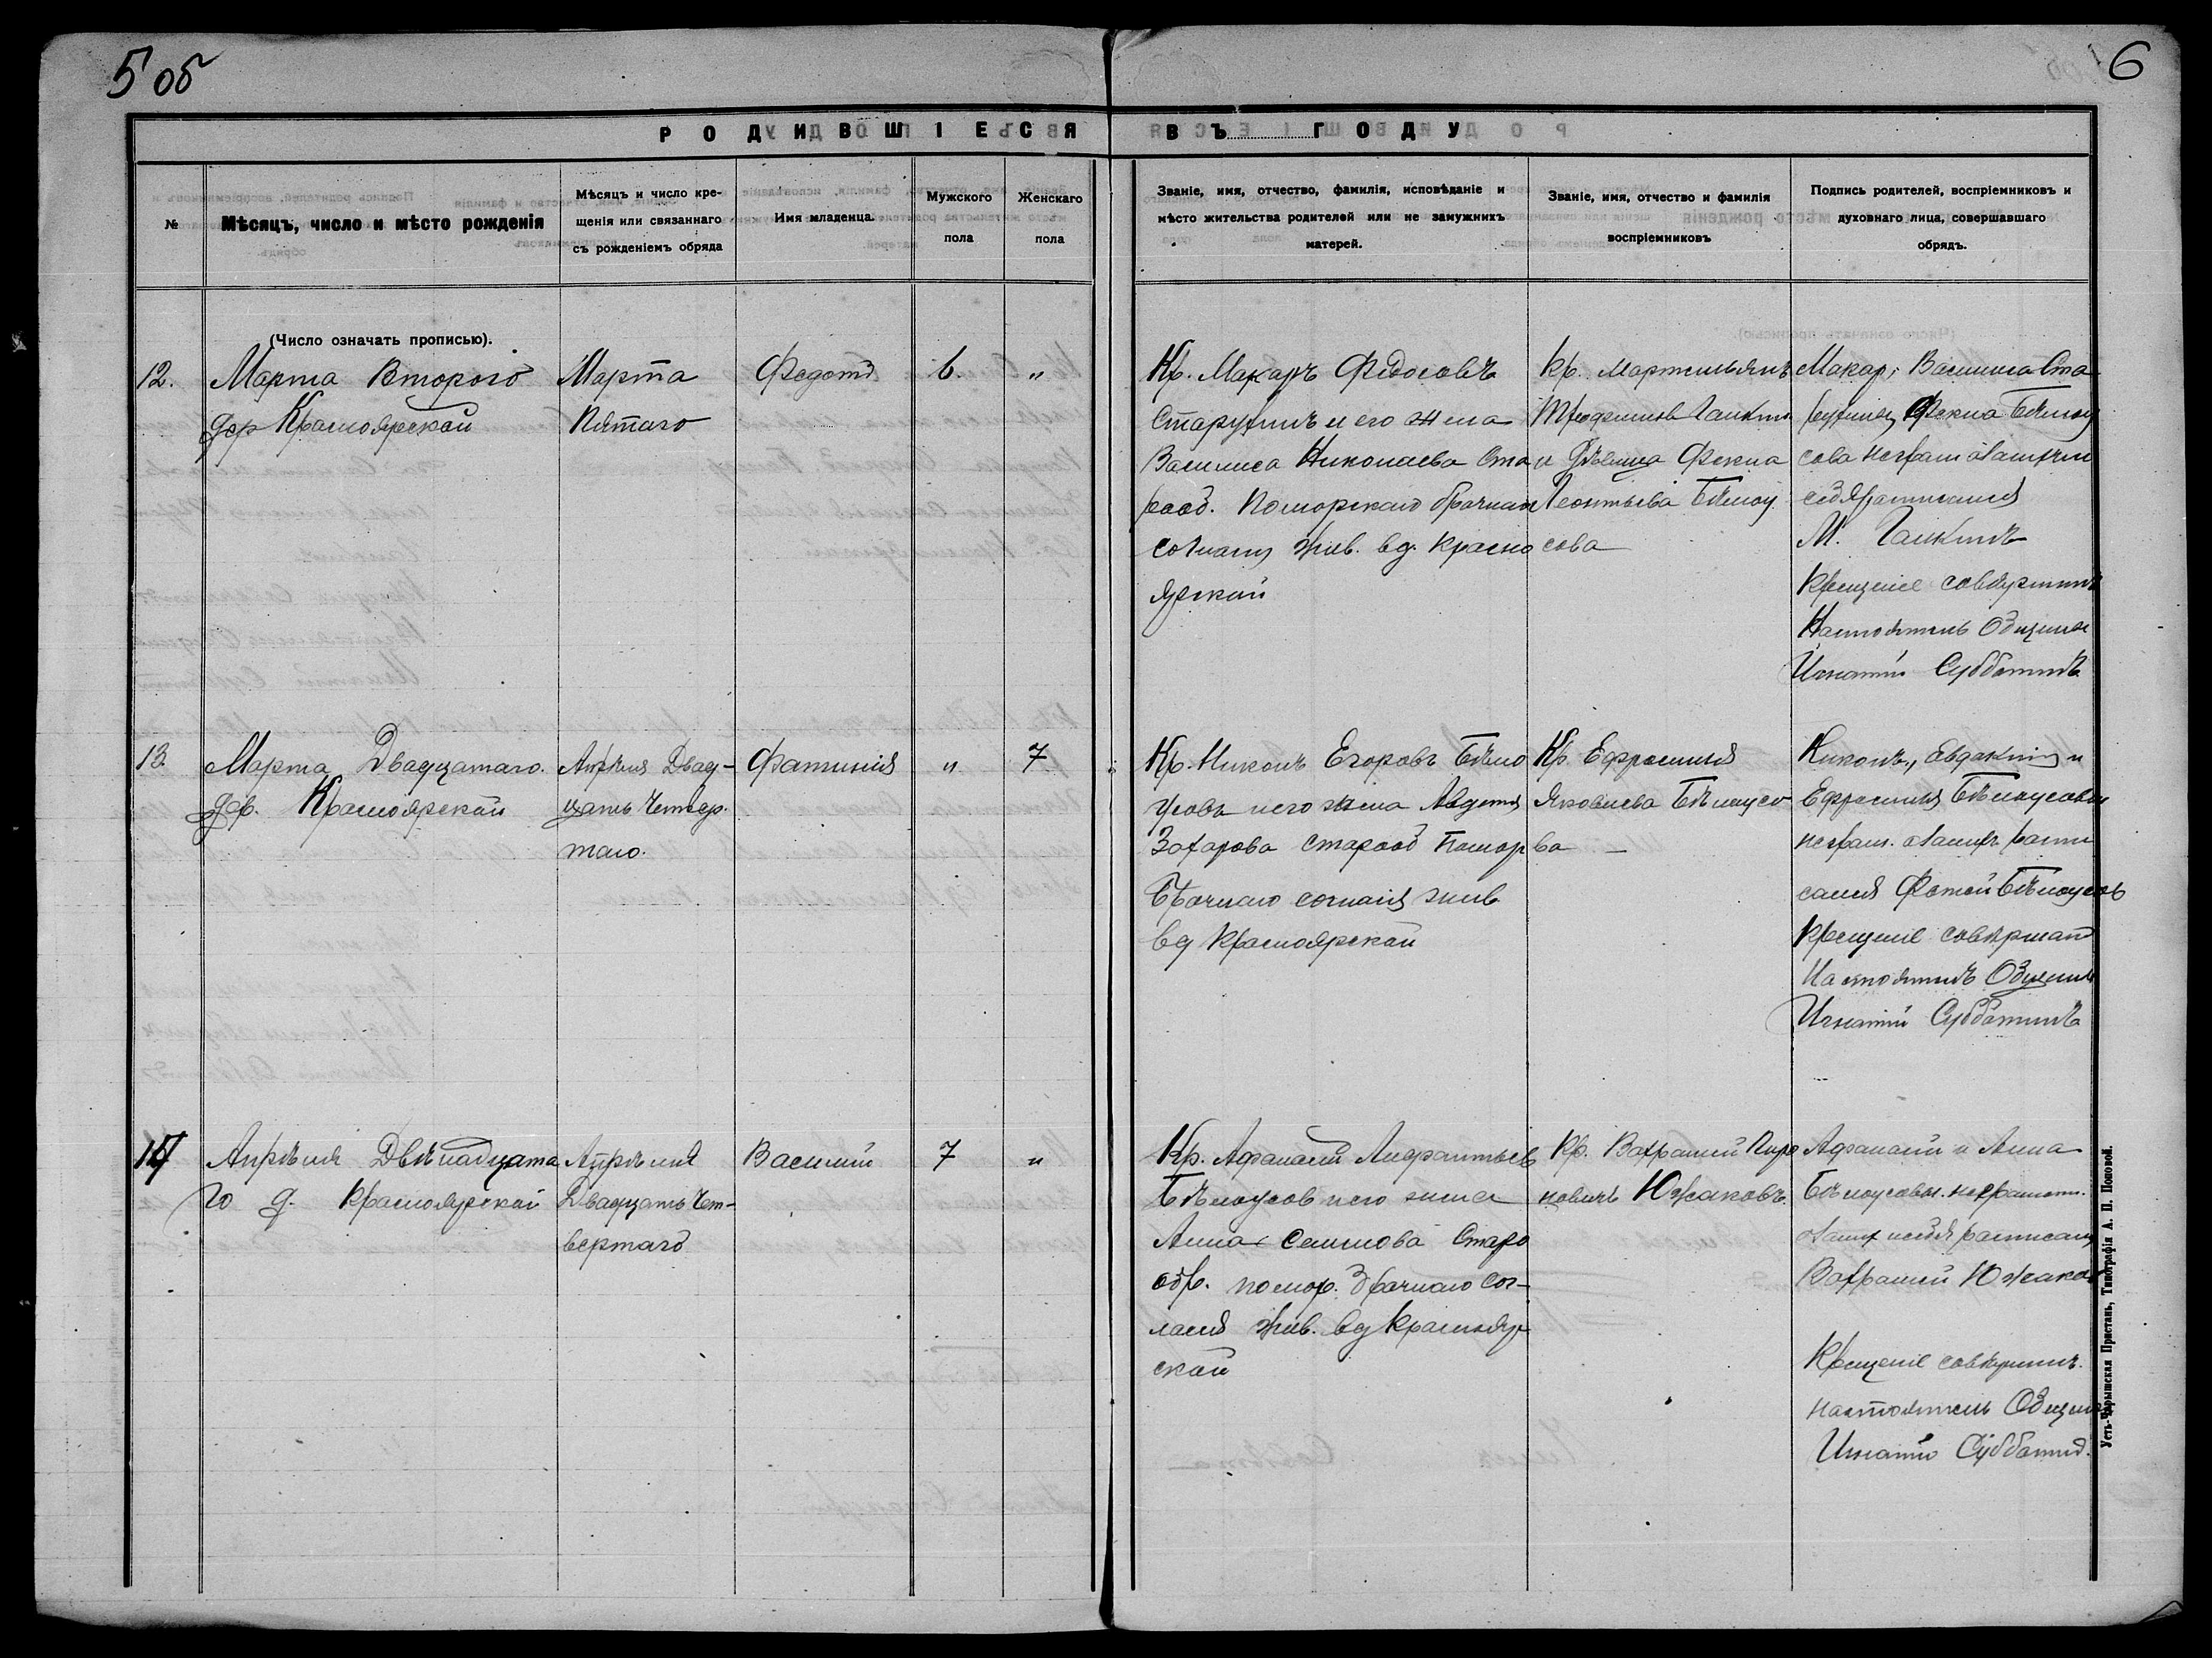 5 об
6
РОДИВШІЕСЯ ВЪ ГОДУ
№
Мѣсяцъ, число и мѣсто рожденія
Мѣсяцъ и число кре-
щенія или связаннаго
съ рожденіемъ обряда
Имя младенца.
Мужского
пола
Женскаго
пола
Званіе, имя, отчество, фамилія, исповѣданіе и
мѣсто жительства родителей или не замужнихъ
матерей.
Званіе, имя, отчество и фамилія
воспріемниковъ
Подпись родителей, воспріемниковъ и
духовнаго лица, совершавшаго
обрядъ.
(Число означать прописью).
12.
Марта Второго
дер Красноярской
Марта
Пятаго
Федотъ
6.
"
Кр. Макаръ Федосовъ
Старухинъ и его жена
Василиса Николаева Ста
рооб. Поморскаго брачнаго
согласія жив. в д. Красно
ярской
Кр. Мартемьянъ
Галкинъ
и Дѣвица Фекла
Леонтьева Бѣлоу
сова
Макар, Василиса Ста
Фекла Бѣлоу
сова неграм
М. Галкинъ
Крещеніе совершилъ
Настоятель Общины
Игнатій Субботинъ
13.
Марта Двадцатаго.
дер. Красноярской
Апрѣля Двад-
цать четвер.
таго.
Фатинія
"
7
Кр. Никонъ Егоровъ Бѣло
усовъ и его жена Авдотія
Захарова старооб Помор
Брачнаго согласія жив
в д Красноярской
Кр. Ефросинія
Яковлева Бѣлоусо
ва —
Никонъ, Евдокія и
Ефросинія Бѣлоусовы
неграм. а за нихъ распи
сался Фотей Бѣлоусовъ
Крещеніе совершалъ
Настоятель Общины
Игнатій Субботинъ
14
Апрѣля Двѣнадцата
го д. Красноярской
Апрѣля
Двадцать чет-
вертаго
Василій
7
"
Кр. Афанасій
Бѣлоусов и его жена
Анна Семенова Старо
обр. помор. брачнаго сог-
ласія жив. в д Краснояр
ской
Кр. Варфамей
новичъ Южаковъ.
Афанасій и Анна
Бѣлоусовы. неграмотн.
Варфамей Южаков
Крещеніе совершилъ.
настоятель Общины
Игнатій Субботинъ.
Усть-Чарышская Пристань, Типографія А. П. Поповой.